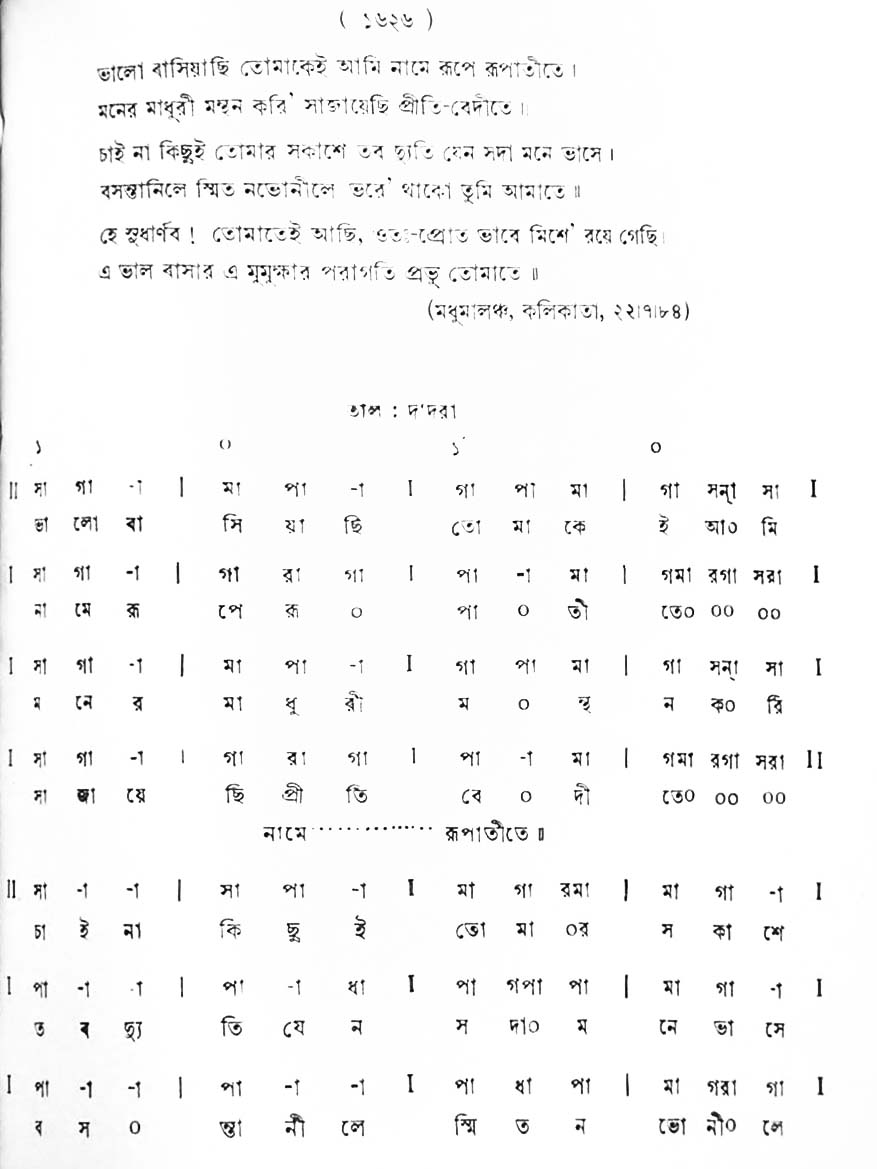 ( ১৬২৬ )
ভালো বাসিয়াছি তোমাকেই আমি নামে রূপে রূপাতীতে।
মনের মাধুরী মন্থন করি' সাজায়েছি প্রীতি-বেদীতে।
চাই না কিছুই তোমার সকাশে তব দ্যুতি যেন সদা মনে ভাসে।
বসন্তানিলে স্মিত নভোনীলে ভরে' থাকো তুমি আমাতে॥
হে সুধার্ণব! তোমাতেই আছি, ওতঃ-প্রোত ভাবে মিশে' রয়ে গেছি।
এ ভাল বাসার এ মুমুক্ষার পরাগতি প্রভু তোমাতে॥
(মধুমালঞ্চ, কলিকাতা, ২২।৭।৮৪)
তাল : দাদরা
১ ০ ১´ ০
II সা গা -া | মা পা -া I গা পা মা | গা সন্া সা I
ভা লো বা সি য়া ছি তো মা কে ই আ০ মি
I সা গা -া | গা রা গা I পা -া মা | গমা রগা সরা I
না মে রূ পে রূ ০ পা ০ তী তে০ ০০ ০০
I সা গা -া | মা পা -া I গা পা মা | গা সন্া সা I
ম নে র মা ধু রী ম ০ ন্থ ন ক০ রি
I সা গা -া | গা রা গা I পা -া মা | গমা রগা সরা II
সা জা য়ে ছি প্রী তি বে ০ দী তে০ ০০ ০০
নামে ............... রূপাতীতে॥
II সা -া -া | সা পা -া I মা গা রমা | মা গা -া I
চা ই না কি ছু ই তো মা ০র স কা শে
I পা -া -া | পা -া ধা I পা গপা পা | মা গা -া I
ত ব দ্যু তি যে ন স দা০ ম নে ভা সে
I পা -া -া | পা -া -া I পা ধা পা | মা গরা গা I
ব স ০ ন্তা নী লে স্মি ত ন ভো নী০ লে